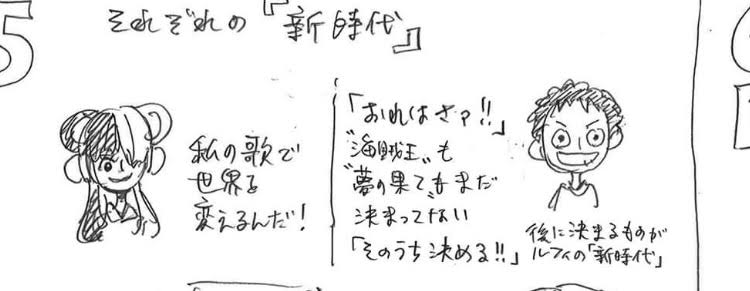 5
それぞれの『新時代』
私の歌で
世界を
変えるんだ！
「おれはさァ!!」
"海賊王"も
"夢の果て"もまだ
決まってない
「そのうち決める!!」
後に決まるものが
ルフィの「新時代」